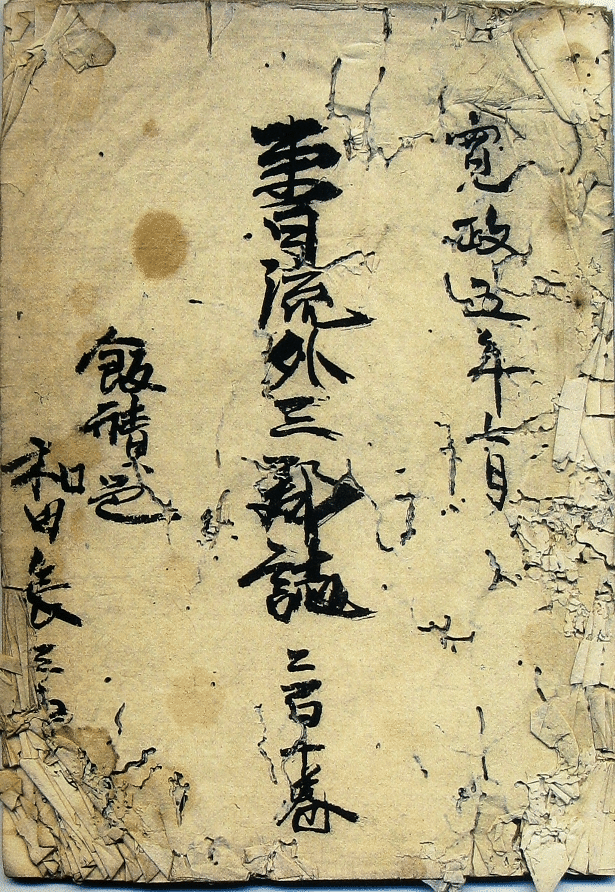 寛政五年七月
東日流外三郡誌 二百十巻
飯積邑
和田長三郎